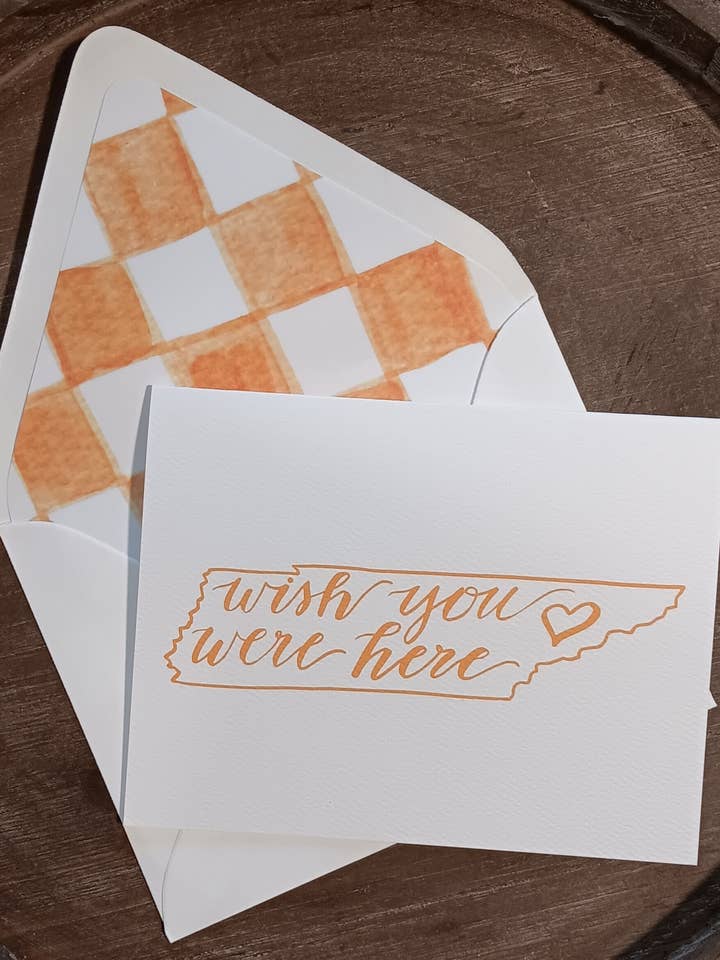 wish you
were here